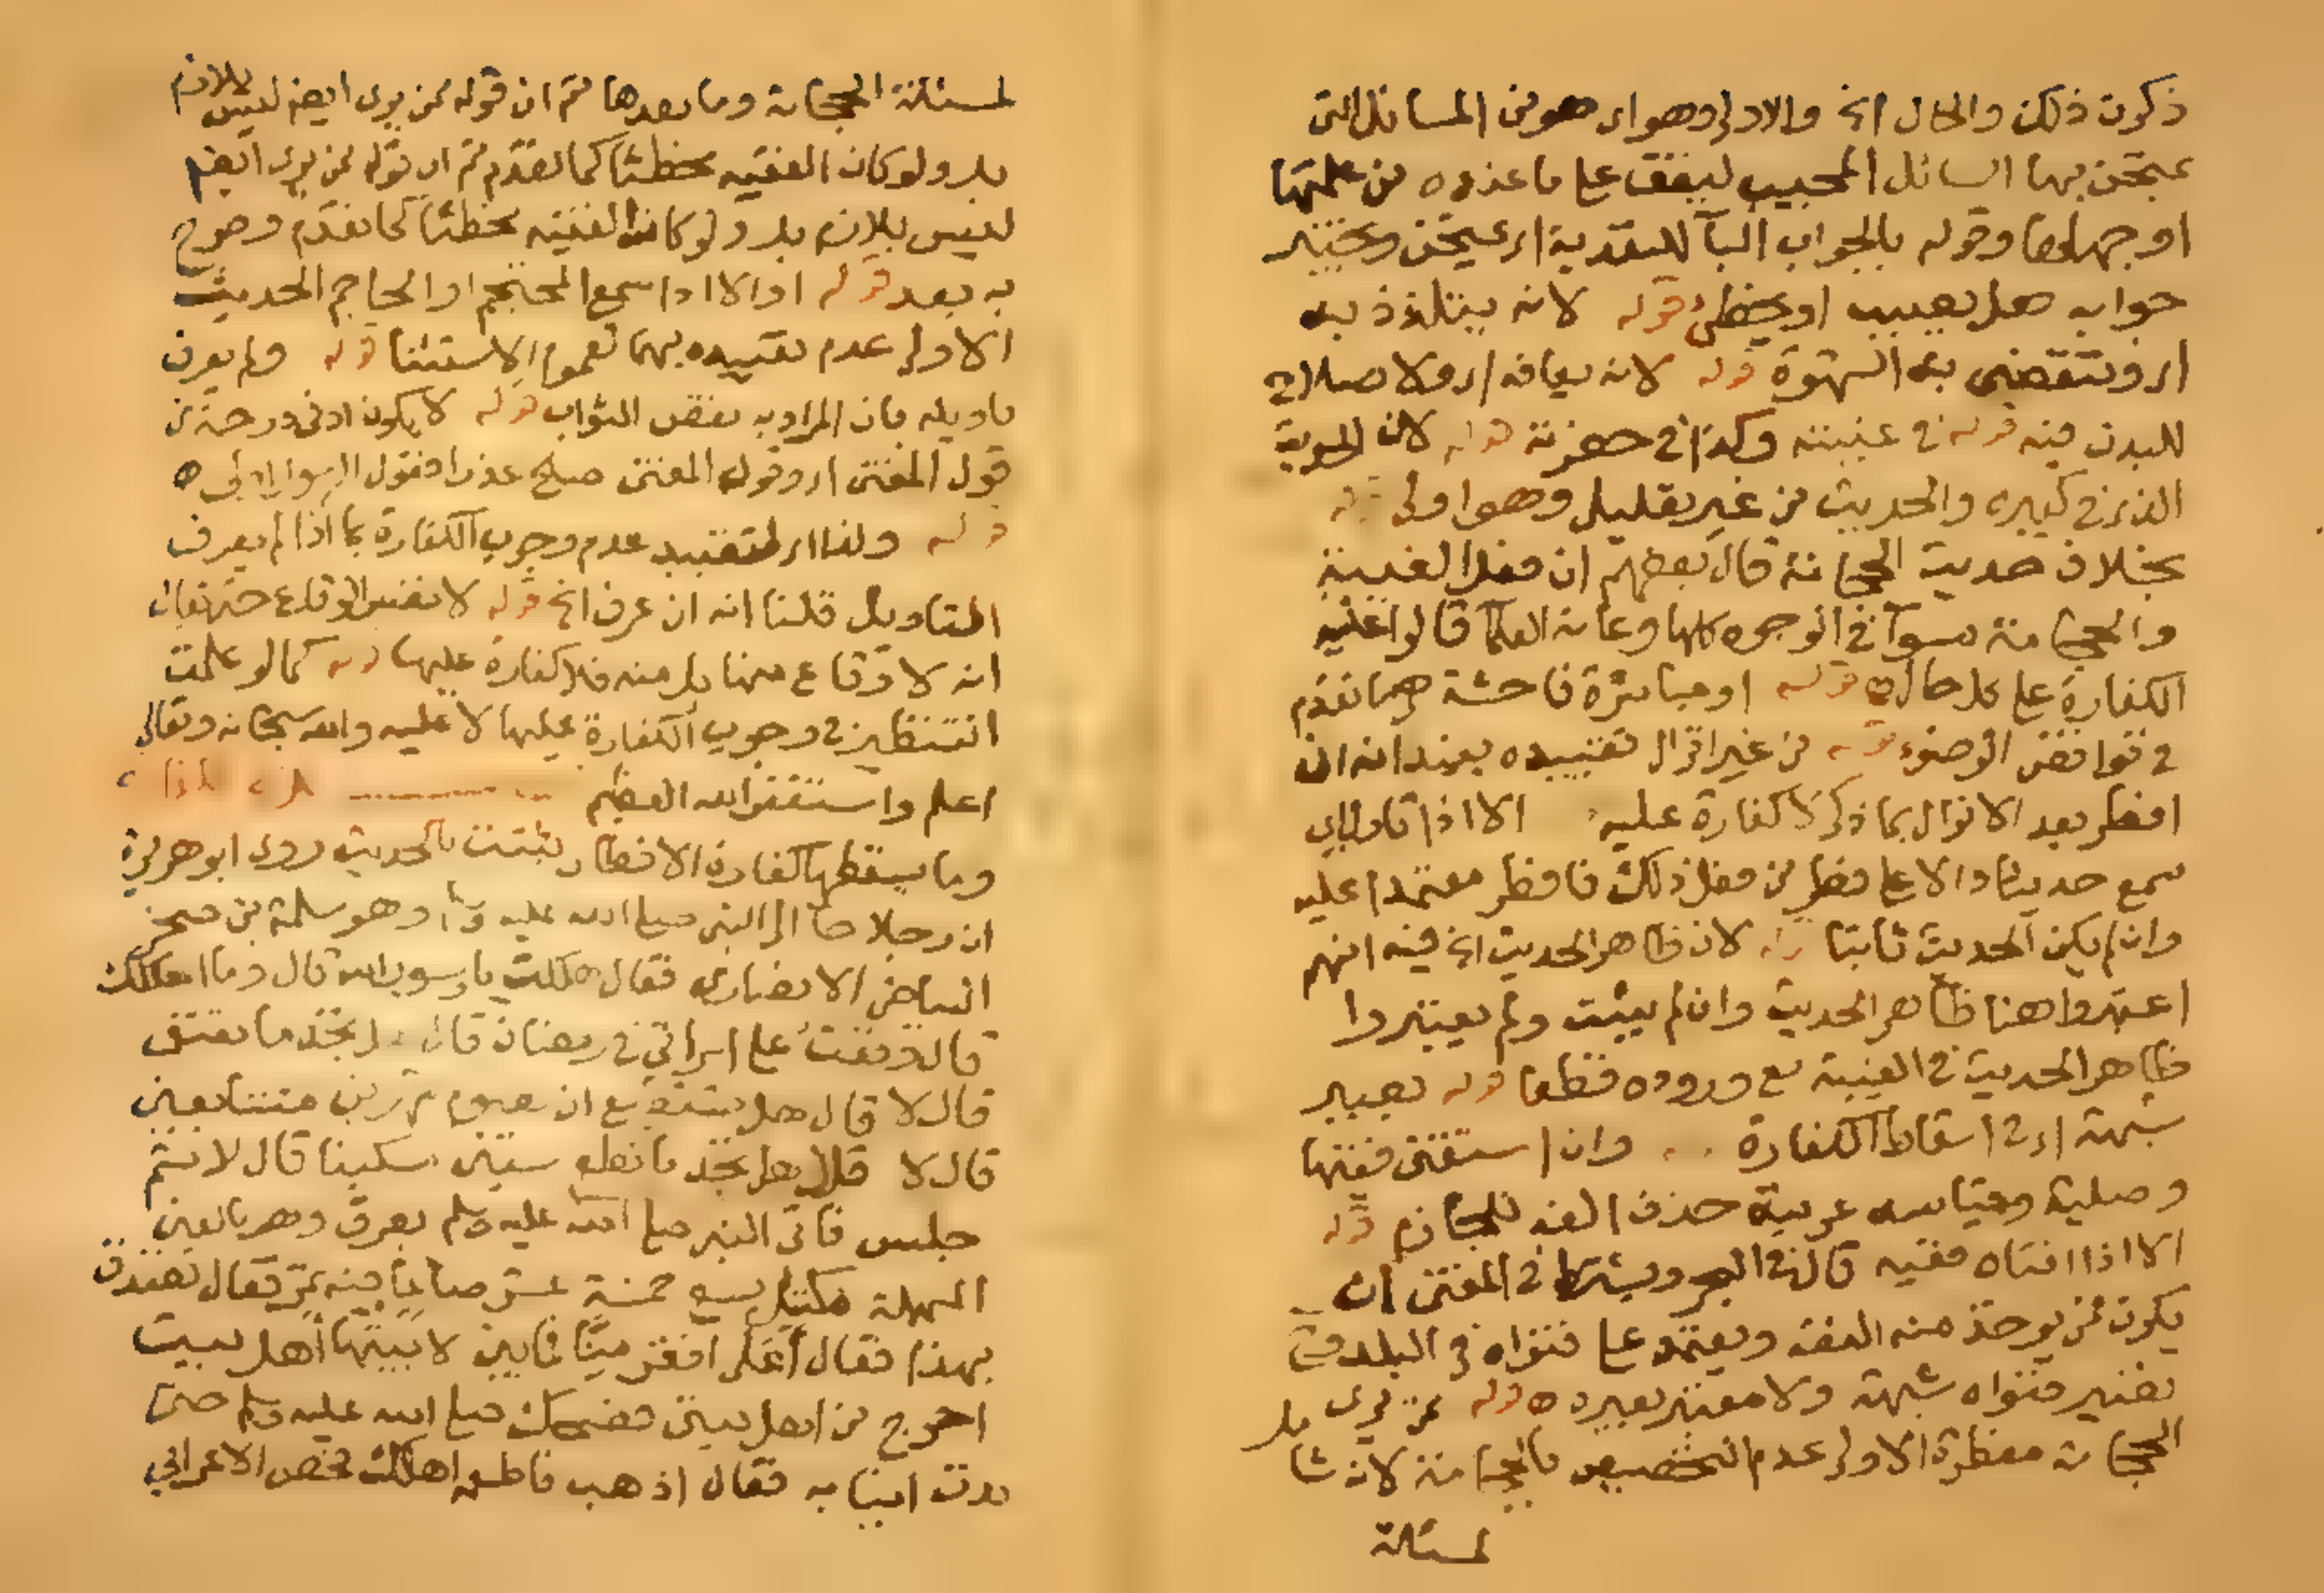 ذكرت ذلك والحال الخ والاولى وهو اى هو من المسائل التى
يمتحن بها السائل المجيب ليقف على ما عنده من علمتها
او جهلها وقوله بالجواب البآ للتعدية اى يمتحن ويختبر
جوابه هل يصيب او يخطئ قوله لانه يتلذذ به
اى وتنقضى به الشهوة قوله لانه يعافه اى ولا صلاح
للبدن فيه قوله فى غيبته وكذا فى حضرته قوله لان الحرية
الذى فى كبيره والحديث من غير تقليل وهو اولى قوله
بخلاف حديث الحجامة قال بعضهم ان هذا الغيبة
والحجامة سوآ فى الوجوه كلها وعامة العلمآ قالوا عليه
الكفارة على كل حال ه قوله او مباشرة فاحشة هما تقدم
فى نواقض الوضوء قوله من غير انزال تقييده يفيد انه ان
افطر بعد الانزال بما ذكر لا كفارة عليه الا اذا تاول اى
سمع حديثا دالا على فطر من فعل ذلك فافطر معتمدا عليه
وان لم يكن الحديث ثابتا قوله لان ظاهر الحديث الخ فيه انهم
اعتبروا هنا ظاهر الحديث وان لم يثبت ولم يعتبروا
ظاهر الحديث فى الغيبة مع وروده قطعا قوله يصير
شبهة اى فى اسقاط الكفارة وان استفتى فقيها
وصلية وقياسه عربية حذف الف للجازم قوله
الا اذا افتاه فقيه قال فى البحر ويشترط فى المفتى ان
يكون ممن يوخذ منه الفقه ويعتمد على فتواه فى البلد
تصير فتواه شبهة ولا معتبر بغيره ه قوله ممن يرى
الحجامة مفطرة الاولى عدم التخصيص بالحجامة لانه شا مل
لمسئلة
لمسئلة الحجامة وما بعدها ثم ان قوله ممن يرى ايضا ليس بلازم
بل ولو كان الفقيه مخطئا كما تقدم ثم ان قوله ممن يرى ايضا
ليس بلازم بل ولو كان الفقيه مخطئا كما تقدم وصرح
به بعد قوله او الا اذا سمع المحتجم او الحاجم الحديث
الاولى عدم تقييده بهما لعموم الاستثنا قوله ولم يعرف
تاويله فان المراد به نقض الثواب قوله لا يكون ادنى درجة من
قول المفتى اى وقول المفتى صلح عذرا فقول الرسول اولى ه
قوله ولذا اى لتقييد عدم وجوب الكفارة بما اذا لم يعرف
التاويل قلنا انه ان عرف الخ قوله لا نفس الوقاع حتى يقال
انه لا وقاع منها بل منه فلا كفارة عليها قوله كما لو علمت
التنظير فى وجوب الكفارة عليها لا عليه والله سبحانه وتعالى
اعلم واستغفر الله العظيم
وما يسقطها كفارة الافطار ثبتت بالحديث روى ابو هريرة
ان رجلا جا الى النبى صلى الله عليه وسلم وهو سلمة بن صخر
البياضى الانصارى فقال هلكت يا رسول الله قال وما اهلكك
قال وقعت على امراتى فى رمضان قال هل تجد ما تعتق
قال لا قال هل تستطيع ان تصوم شهرين متتابعين
قال لا قال هل تجد ما تطعم ستين مسكينا قال لا ثم
جلس فاتى النبى صلى الله عليه وسلم بعرق وهو بالعين
المهملة مكتل يسع خمسة عشر صاعا فيه تمر فقال تصدق
بهذا فقال أعلى افقر منا فما بين لابتيها أهل بيت
احوج من اهل بيتى فضحك صلى الله عليه وسلم حتى
بدت انيابه فقال اذهب فاطعمه اهلك فخص الاعرابى